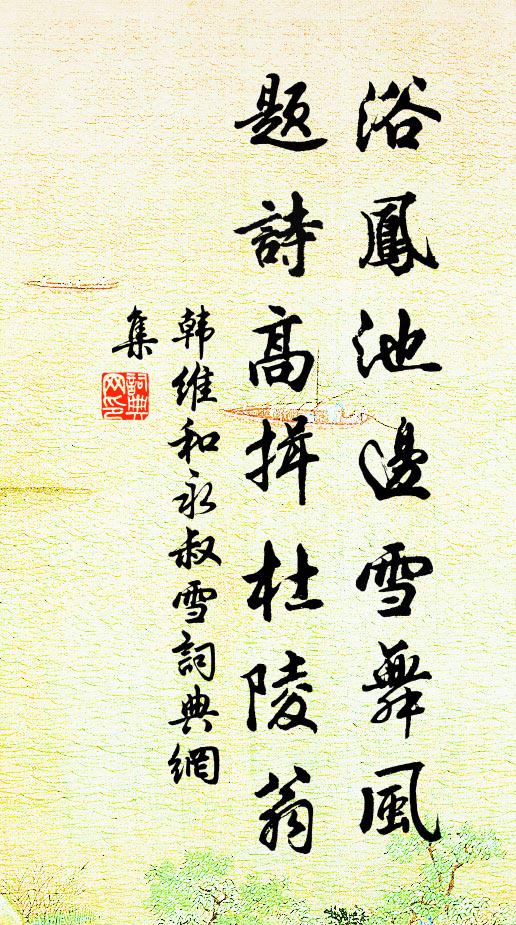 浴鳳池邊雪舞風
題詩高揖杜陵翁
韩維和永叔雪詞典網
集
詞典网印